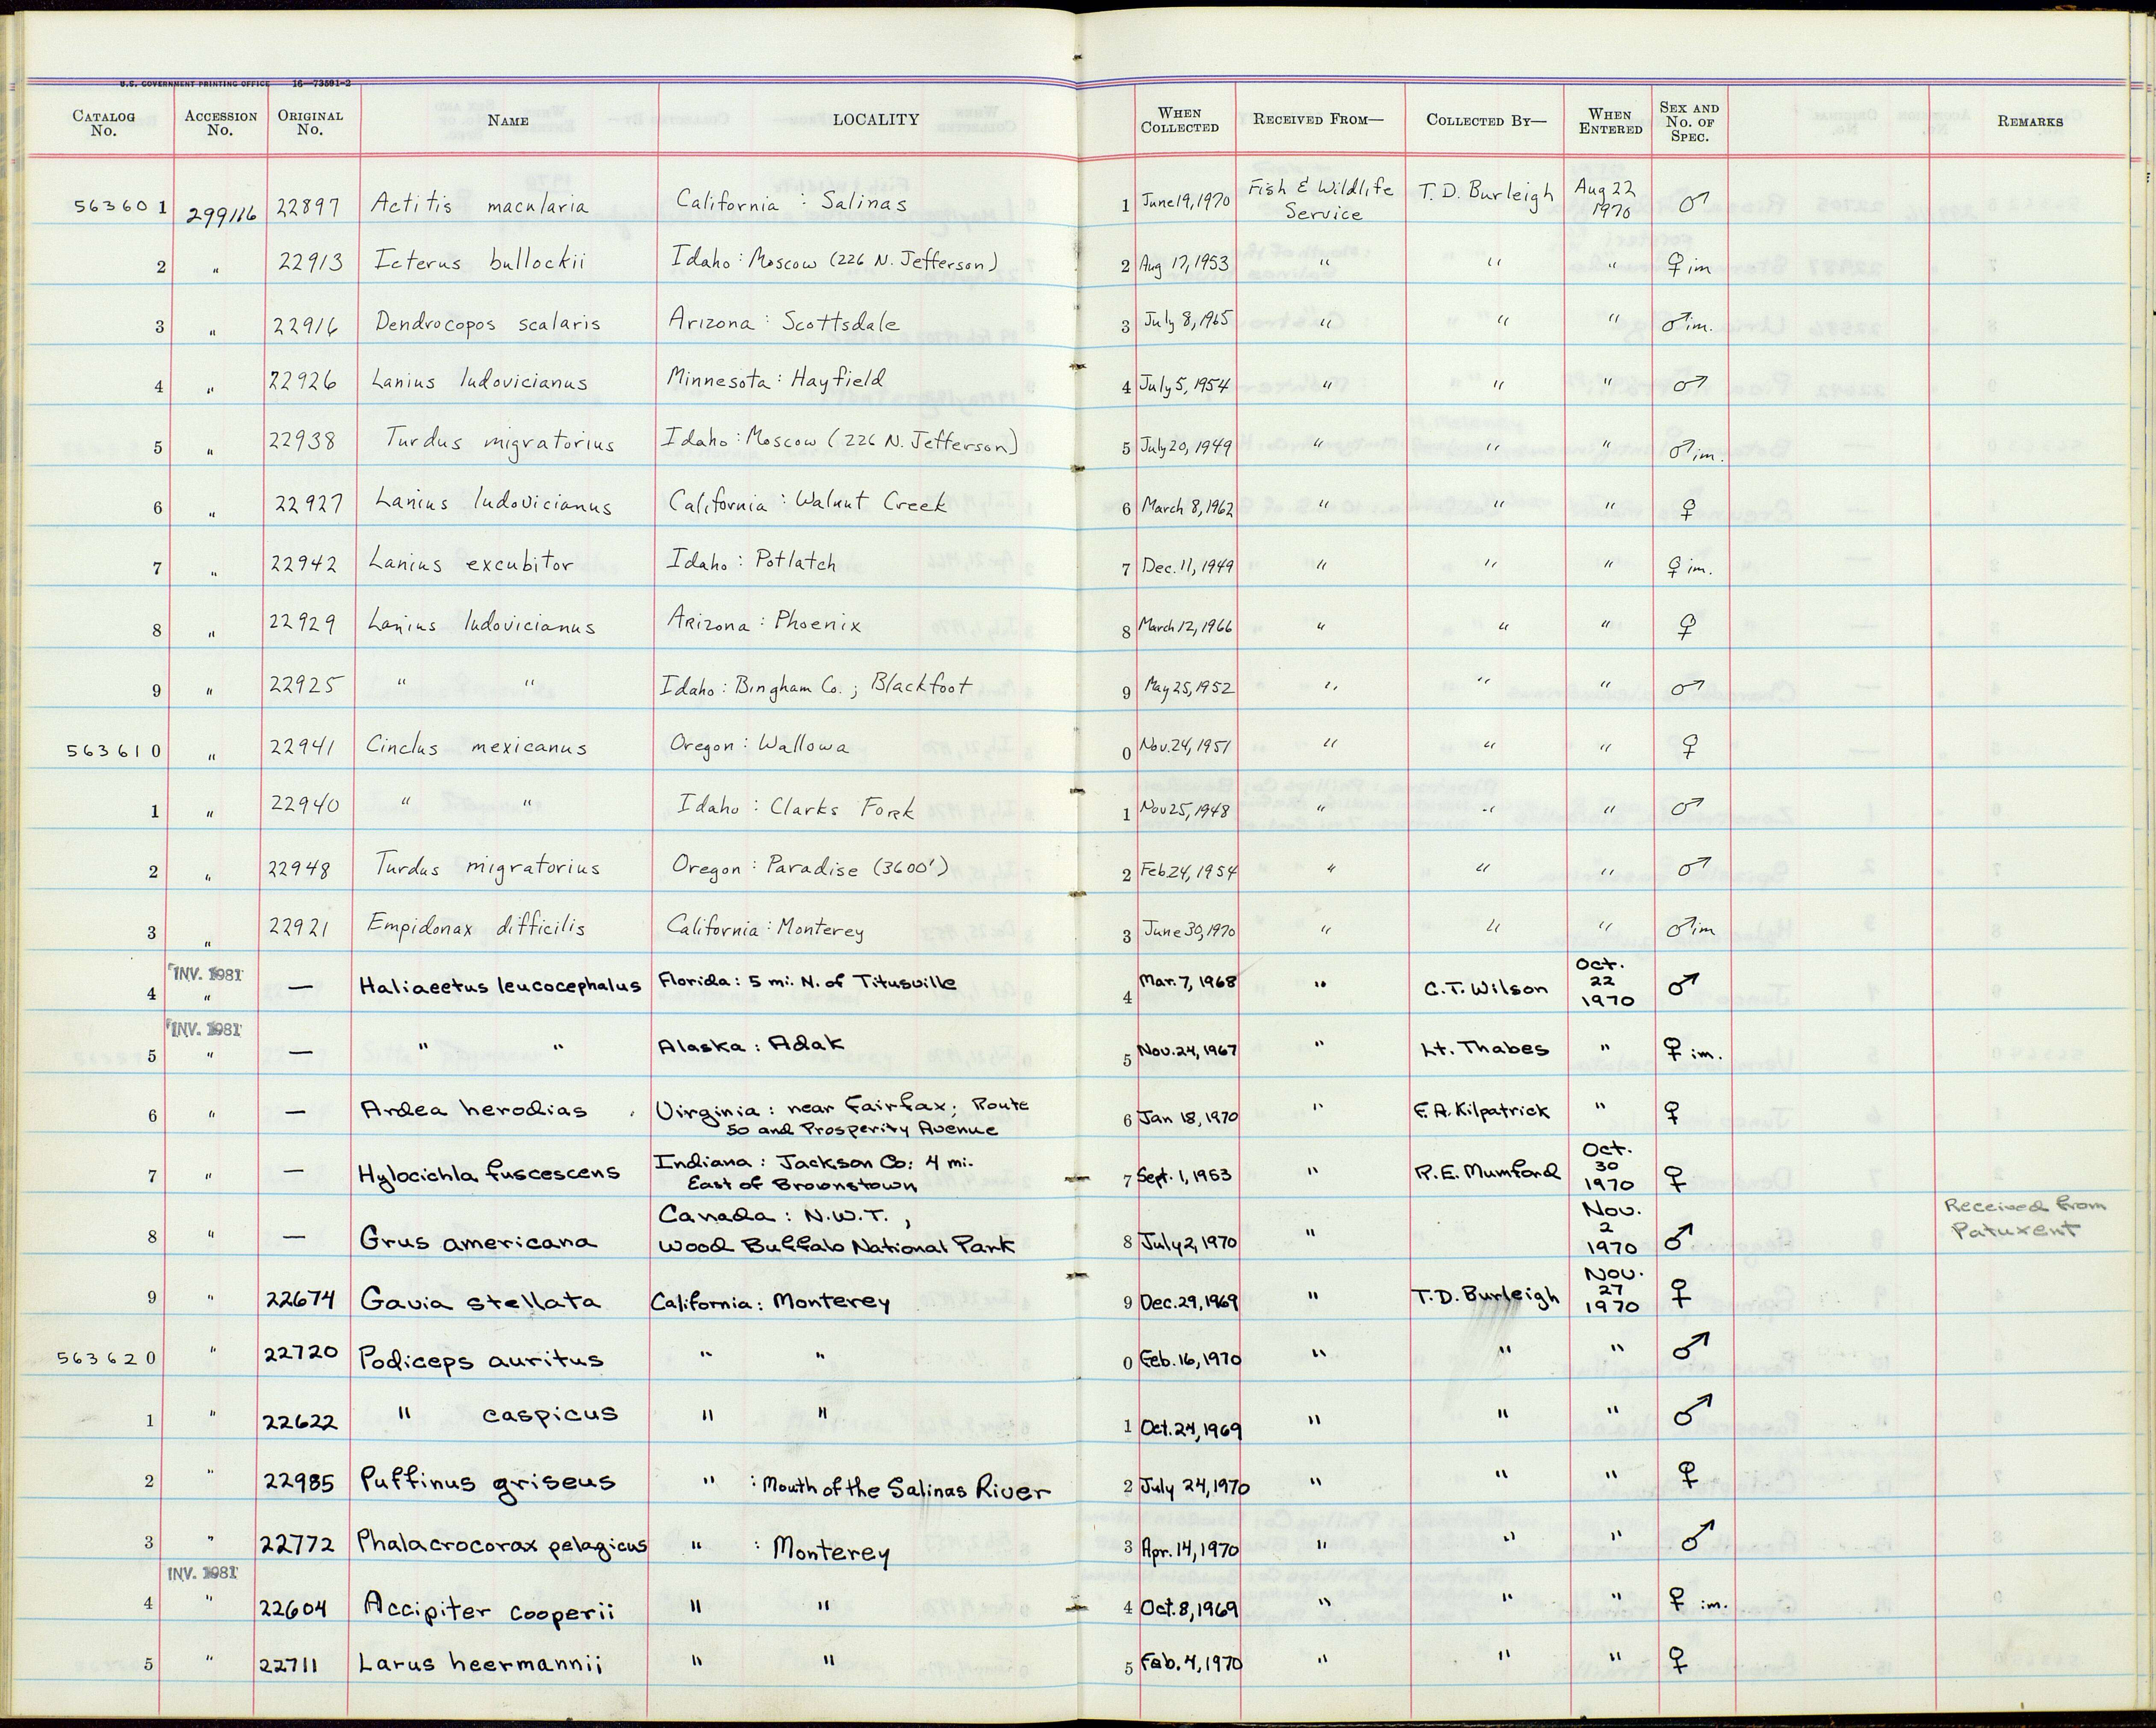 U.S. GOVERNMENT PRINTING OFFICE 16—73591-2
CATALOG No. ACCESSION No. ORIGINAL No. NAME LOCALITY WHEN COLLECTED RECEIVED FROM— COLLECTED BY— WHEN ENTERED SEX AND No. OF SPEC. REMARKS
563601 299116 22897 Actitis macularia California : Salinas 1 June 19, 1970 Fish & Wildlife Service T. D. Burleigh Aug 22 1970 ♂
2 " 22913 Icterus bullockii Idaho : Moscow (226 N. Jefferson) 2 Aug 17, 1953 " " " ♀ im
3 " 22916 Dendrocopos scalaris Arizona : Scottsdale 3 July 8, 1965 " " " ♂ im.
4 " 22926 Lanius ludovicianus Minnesota : Hayfield 4 July 5, 1954 " " " ♂
5 " 22938 Turdus migratorius Idaho : Moscow (226 N. Jefferson) 5 July 20, 1949 " " " ♂ im.
6 " 22927 Lanius ludovicianus California : Walnut Creek 6 March 8, 1962 " " " ♀
7 " 22942 Lanius excubitor Idaho : Potlatch 7 Dec. 11, 1949 " " " ♀ im.
8 " 22929 Lanius ludovicianus Arizona : Phoenix 8 March 12, 1966 " " " ♀
9 " 22925 " " Idaho : Bingham Co. ; Blackfoot 9 May 25, 1952 " " " ♂
563610 " 22941 Cinclus mexicanus Oregon : Wallowa 0 Nov. 24, 1951 " " " ♀
1 " 22940 " " Idaho : Clarks Fork 1 Nov 25, 1948 " " " ♂
2 " 22948 Turdus migratorius Oregon : Paradise (3600') 2 Feb 24, 1954 " " " ♂
3 " 22921 Empidonax difficilis California : Monterey 3 June 30, 1970 " " " ♂ im
INV. 1981
4 " — Haliaeetus leucocephalus Florida : 5 mi. N. of Titusville 4 Mar. 7, 1968 " C. T. Wilson Oct. 22 1970 ♂
INV. 1981
5 " — " " Alaska : Adak 5 Nov. 24, 1967 " Lt. Thabes " ♀ im.
6 " — Ardea herodias Virginia : near Fairfax; Route 50 and Prosperity Avenue 6 Jan 18, 1970 " F. A. Kilpatrick " ♀
7 " — Hylocichla fuscescens Indiana : Jackson Co: 4 mi. East of Brownstown 7 Sept. 1, 1953 " R. E. Mumford Oct. 30 1970 ♀
8 " — Grus americana Canada : N.W.T. , Wood Buffalo National Park 8 July 2, 1970 " Nov. 2 1970 ♂ Received from Patuxent
9 " 22674 Gavia stellata California : Monterey 9 Dec. 29, 1969 " T. D. Burleigh Nov. 27 1970 ♀
563620 " 22720 Podiceps auritus " " 0 Feb. 16, 1970 " " " ♂
1 " 22622 " caspicus " " 1 Oct. 24, 1969 " " " ♂
2 " 22985 Puffinus griseus " : Mouth of the Salinas River 2 July 24, 1970 " " " ♀
3 " 22772 Phalacrocorax pelagicus " : Monterey 3 Apr. 14, 1970 " " " ♂
INV. 1981
4 " 22604 Accipiter cooperii " " 4 Oct. 8, 1969 " " " ♀ im.
5 " 22711 Larus heermannii " " 5 Feb. 4, 1970 " " " ♀